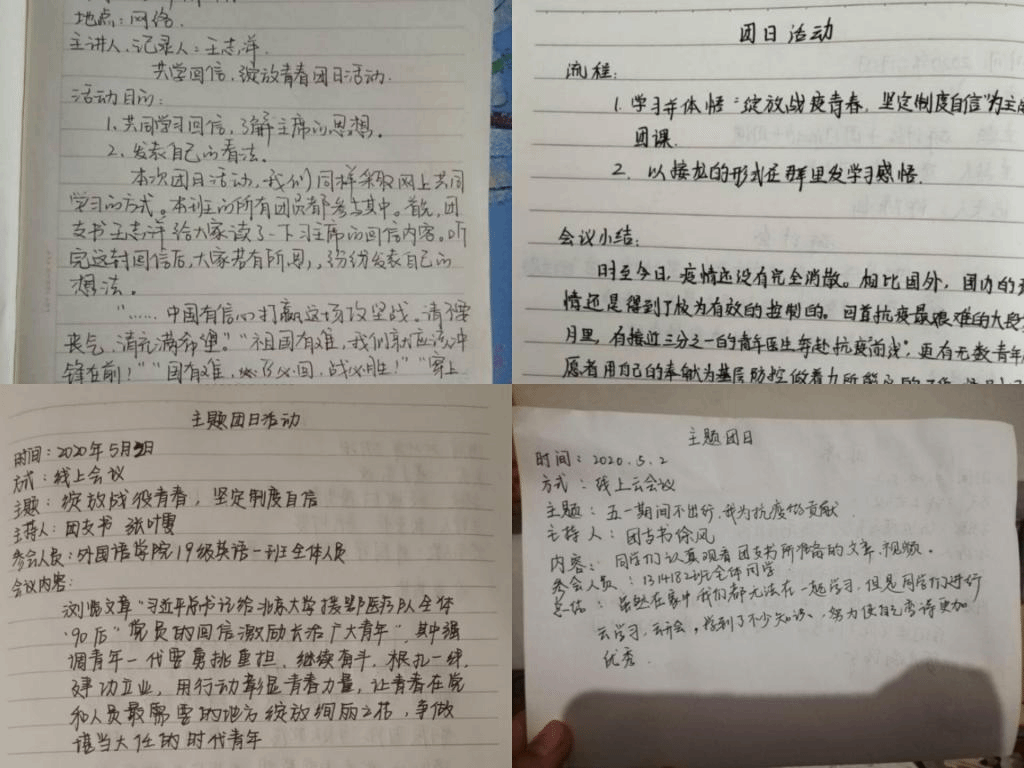 地点：网络.
主讲人、记录人：王志洋.
共学回信，绽放青春团日活动.
活动目的：
1.共同学习回信，了解主席的思想。
2.发表自己的看法。
本次团日活动，我们同样采取网上共同
学习的方式。本班的所有团员都参与其中。首先，团
支书王志洋给大家读了一下习主席的回信内容。听
完这封回信后，大家若有所思，纷纷发表自己的
想法。
"……中国有信心打赢这场攻坚战。请不要
丧气，请充满希望。""祖国有难，我们就应该冲
锋在前！""国有难，召必回，战必胜！""穿上
团日活动
流程：
1.学习并体悟"绽放战疫青春，坚定制度自信"为主
团课.
2.以接龙的形式在群里发学习感悟.
会议小结：
时至今日，疫情还没有完全消散。相比国外，国内的
情还是得到了较为有效的控制的。回首抗疫最艰难的
月里，有接近三分之一的青年医生奔赴抗疫前线，更有无数青年
愿者用自己的奉献为基层防控做着力所能及的
主题团日活动
时间：2020年5月2日
方式：线上会议
主题：绽放战役青春，坚定制度自信
主持人：团支书
参会人员：外国语学院19级英语一班全体人员
会议内容：
浏览文章"习近平总书记给北京大学援鄂医疗队全体
'90后'党员的回信激励长治广大青年"，其中强
调青年一代要勇挑重担、继续奋斗，根扎一线，
建功立业，用行动彰显青春力量，让青春在党
和人民最需要的地方绽放绚丽之花，争做
堪当大任的时代青年
主题团日
时间：2020.5.2
方式：线上云会议
主题：五一期间不出行，我为抗疫做贡献
主持人：团支书徐凤
内容：同学们认真观看团支书所准备的文章、视频。
参会人员：1314182班全体同学
总结：虽然在家中我们都无法在一起学习，但是同学们进行
云学习，云开会，学到了不少知识，努力使自己变得更加
优秀.